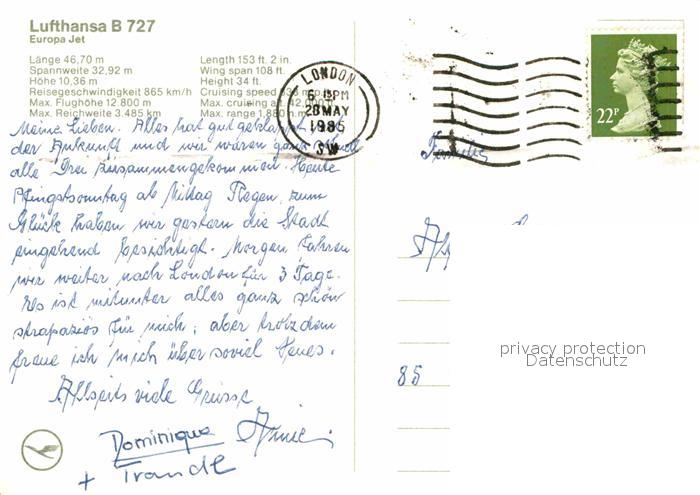 Lufthansa B 727
Europa Jet
Länge 46,70 m
Spannweite 32,92 m
Höhe 10,36 m
Reisegeschwindigkeit 865 km/h
Max. Flughöhe 12.800 m
Max. Reichweite 3.485 km
Length 153 ft. 2 in.
Wing span 108 ft.
Height 34 ft.
Cruising speed m.p.h.
Max. cruising alt. 42,000 ft.
Max. range 1,880 n.m.
LONDON
6 PM
28 MAY
1985
SW
22P
Meine Lieben. Alles hat gut geklappt
der Ankunft und wir waren ganz schnell
alle Drei zusammengekommen. Heute
Pfingstsonntag ab Mittag Regen. zum
Glück haben wir gestern die Stadt
eingehend besichtigt. Morgen fahren
wir weiter nach London für 3 Tage.
Es ist mitunter alles ganz schön
strapaziös für mich, aber trotzdem
freue ich mich über soviel Neues.
Allseits viele Grüsse
Dominique
+ Traudl
Familie
85
privacy protection
Datenschutz